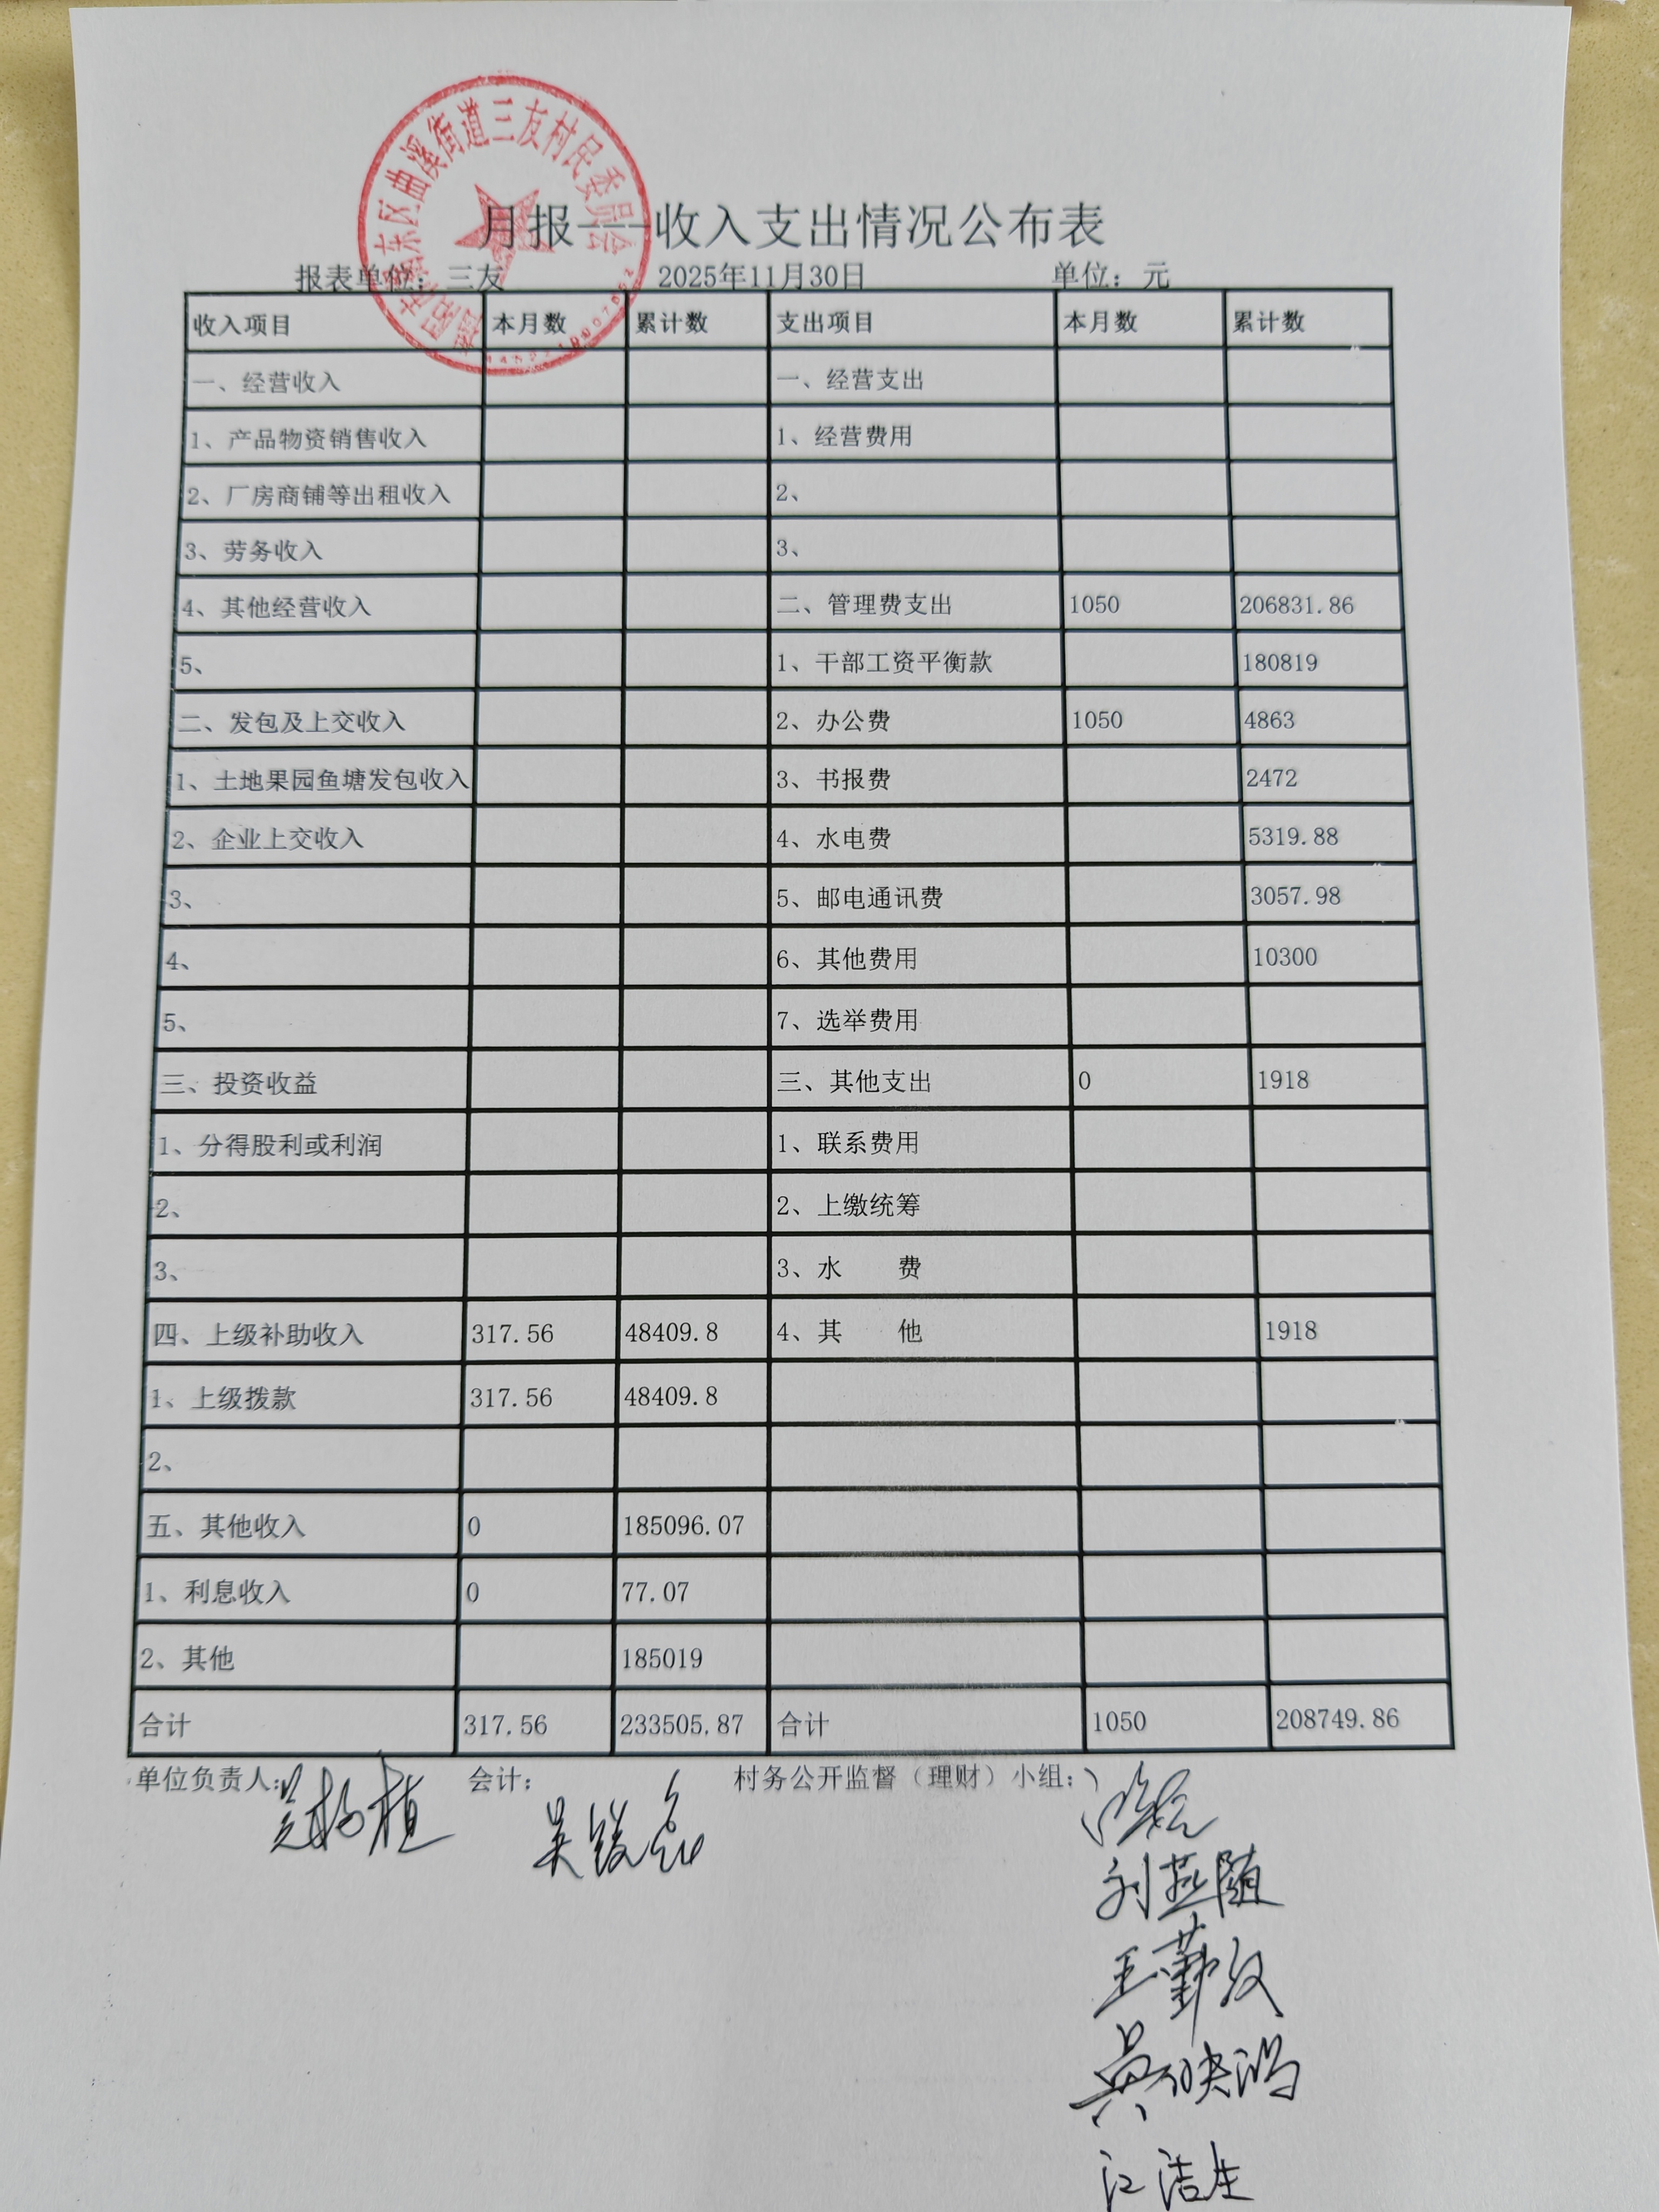 揭阳市揭东区曲溪街道三友村民委员会
月报---收入支出情况公布表
报表单位：三友 2025年11月30日 单位：元
收入项目 本月数 累计数 支出项目 本月数 累计数
一、经营收入 一、经营支出
1、产品物资销售收入 1、经营费用
2、厂房商铺等出租收入 2、
3、劳务收入 3、
4、其他经营收入 二、管理费支出 1050 206831.86
5、 1、干部工资平衡款 180819
二、发包及上交收入 2、办公费 1050 4863
1、土地果园鱼塘发包收入 3、书报费 2472
2、企业上交收入 4、水电费 5319.88
3、 5、邮电通讯费 3057.98
4、 6、其他费用 10300
5、 7、选举费用
三、投资收益 三、其他支出 0 1918
1、分得股利或利润 1、联系费用
2、 2、上缴统筹
3、 3、水 费
四、上级补助收入 317.56 48409.8 4、其 他 1918
1、上级拨款 317.56 48409.8
2、
五、其他收入 0 185096.07
1、利息收入 0 77.07
2、其他 185019
合计 317.56 233505.87 合计 1050 208749.86
单位负责人： 会计： 村务公开监督（理财）小组：
刘燕随
江洁生